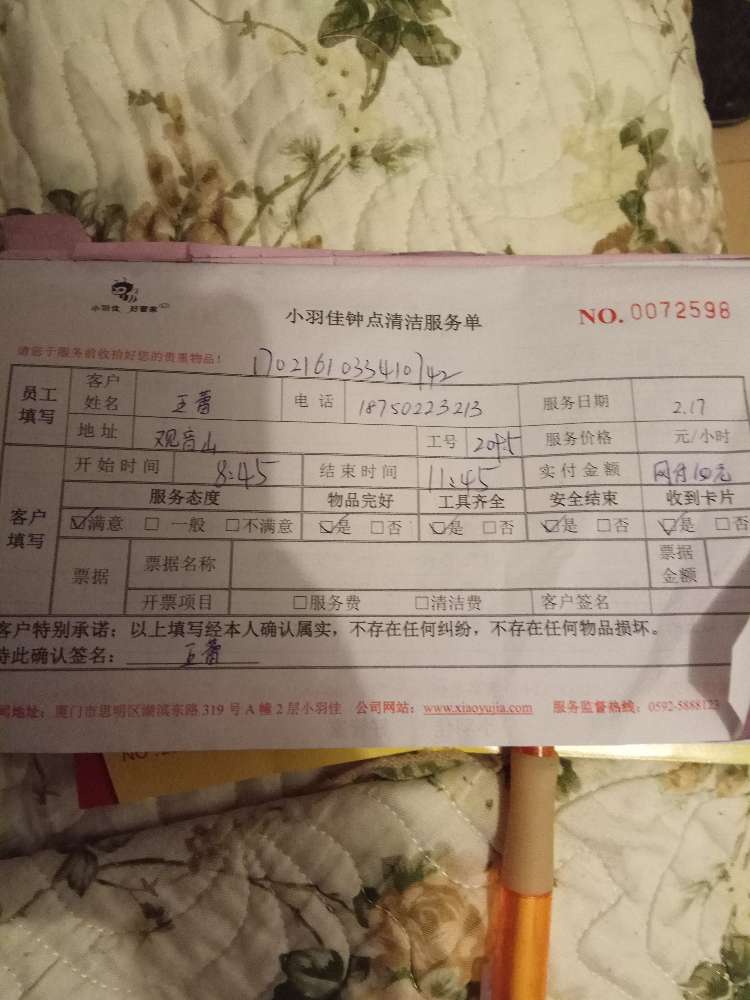 小羽佳 好管家
小羽佳钟点清洁服务单
NO. 0072598
请您于服务前收拾好您的贵重物品!
170216103341042
员工填写 客户姓名 王蕾 电话 18750223213 服务日期 2.17
地址 观音山 工号 2095 服务价格 元/小时
客户填写 开始时间 8:45 结束时间 11:45 实付金额 网付 元
服务态度 物品完好 工具齐全 安全结束 收到卡片
☑满意 □一般 □不满意 ☑是 □否 ☑是 □否 ☑是 □否 ☑是 □否
票据 票据名称 票据金额
开票项目 □服务费 □清洁费 客户签名
客户特别承诺:以上填写经本人确认属实,不存在任何纠纷,不存在任何物品损坏。
特此确认签名: 王蕾
地址:厦门市思明区湖滨东路 319 号 A 幢 2 层小羽佳 公司网站:www.xiaoyujia.com 服务监督热线:0592-5888123